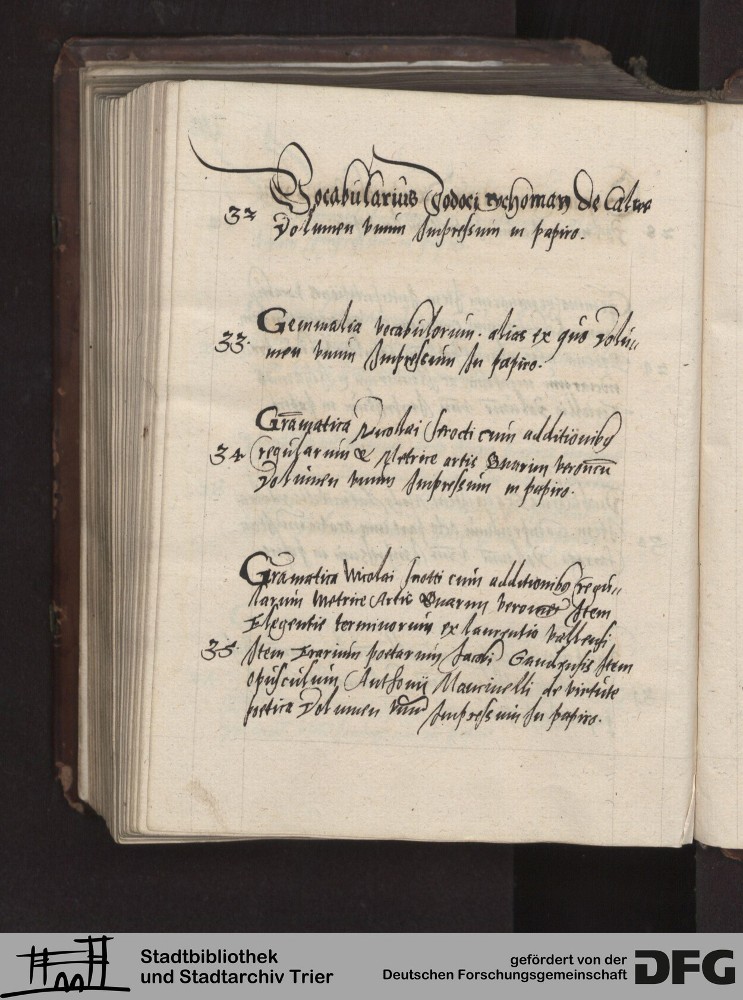 Vocabularius Jodoci Eychoman de Calwe
32 Volumen unum Impressum in papiro.
Gemmalia vocabulorum. alias ex quo Volu-
33. men unum Impressum In papiro.
Gramatica Nicolai Perotti cum additionibus
34 regularum & Metrice artis Guarini Veronen
Volumen unum Impressum in papiro.
Gramatica Nicolai Perotti cum additionibus regu-
larum Metrice Artis Guarini Item
Elegentie terminorum ex laurentio vallensi
35. Item Erarium poetarum Jacobi Gaudensis Item
opusculum Anthonii Mancinelli de virtute
poetica Volumen unum Impressum In papiro.
Stadtbibliothek
und Stadtarchiv Trier
gefördert von der
Deutschen Forschungsgemeinschaft
DFG